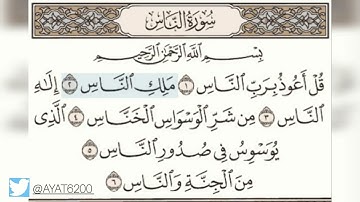 سُورَةُ النَّاسِ
بِسْمِ ٱللَّهِ ٱلرَّحْمَٰنِ ٱلرَّحِيمِ
قُلْ أَعُوذُ بِرَبِّ ٱلنَّاسِ ١ مَلِكِ ٱلنَّاسِ ٢ إِلَٰهِ
ٱلنَّاسِ ٣ مِن شَرِّ ٱلْوَسْوَاسِ ٱلْخَنَّاسِ ٤ ٱلَّذِى
يُوَسْوِسُ فِى صُدُورِ ٱلنَّاسِ ٥
مِنَ ٱلْجِنَّةِ وَٱلنَّاسِ ٦
@AYAT6200